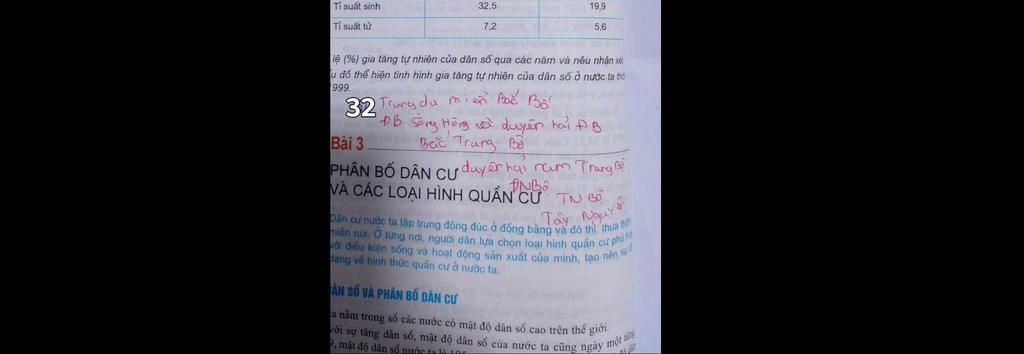 Tỉ suất sinh 32,5 19,9
Tỉ suất tử 7,2 5,6
lệ (%) gia tăng tự nhiên của dân số qua các năm và nêu nhận xét.
đồ thể hiện tình hình gia tăng tự nhiên của dân số ở nước ta thời
1999.
32 Trung du miền Bắc Bộ
ĐB Sông Hồng và duyên hải ĐB
Bắc Trung Bộ
Bài 3
duyên hải nam Trung Bộ
PHÂN BỐ DÂN CƯ
ĐNBộ TN Bộ
VÀ CÁC LOẠI HÌNH QUẦN CƯ
Tây Nguyên
Dân cư nước ta tập trung đông đúc ở đồng bằng và đô thị, thưa thớt
miền núi. Ở từng nơi, người dân lựa chọn loại hình quần cư phù hợp
với điều kiện sống và hoạt động sản xuất của mình, tạo nên sự
dạng về hình thức quần cư ở nước ta.
DÂN SỐ VÀ PHÂN BỐ DÂN CƯ
nằm trong số các nước có mật độ dân số cao trên thế giới.
với sự tăng dân số, mật độ dân số của nước ta cũng ngày một tăng
mật độ dân số nước ta là